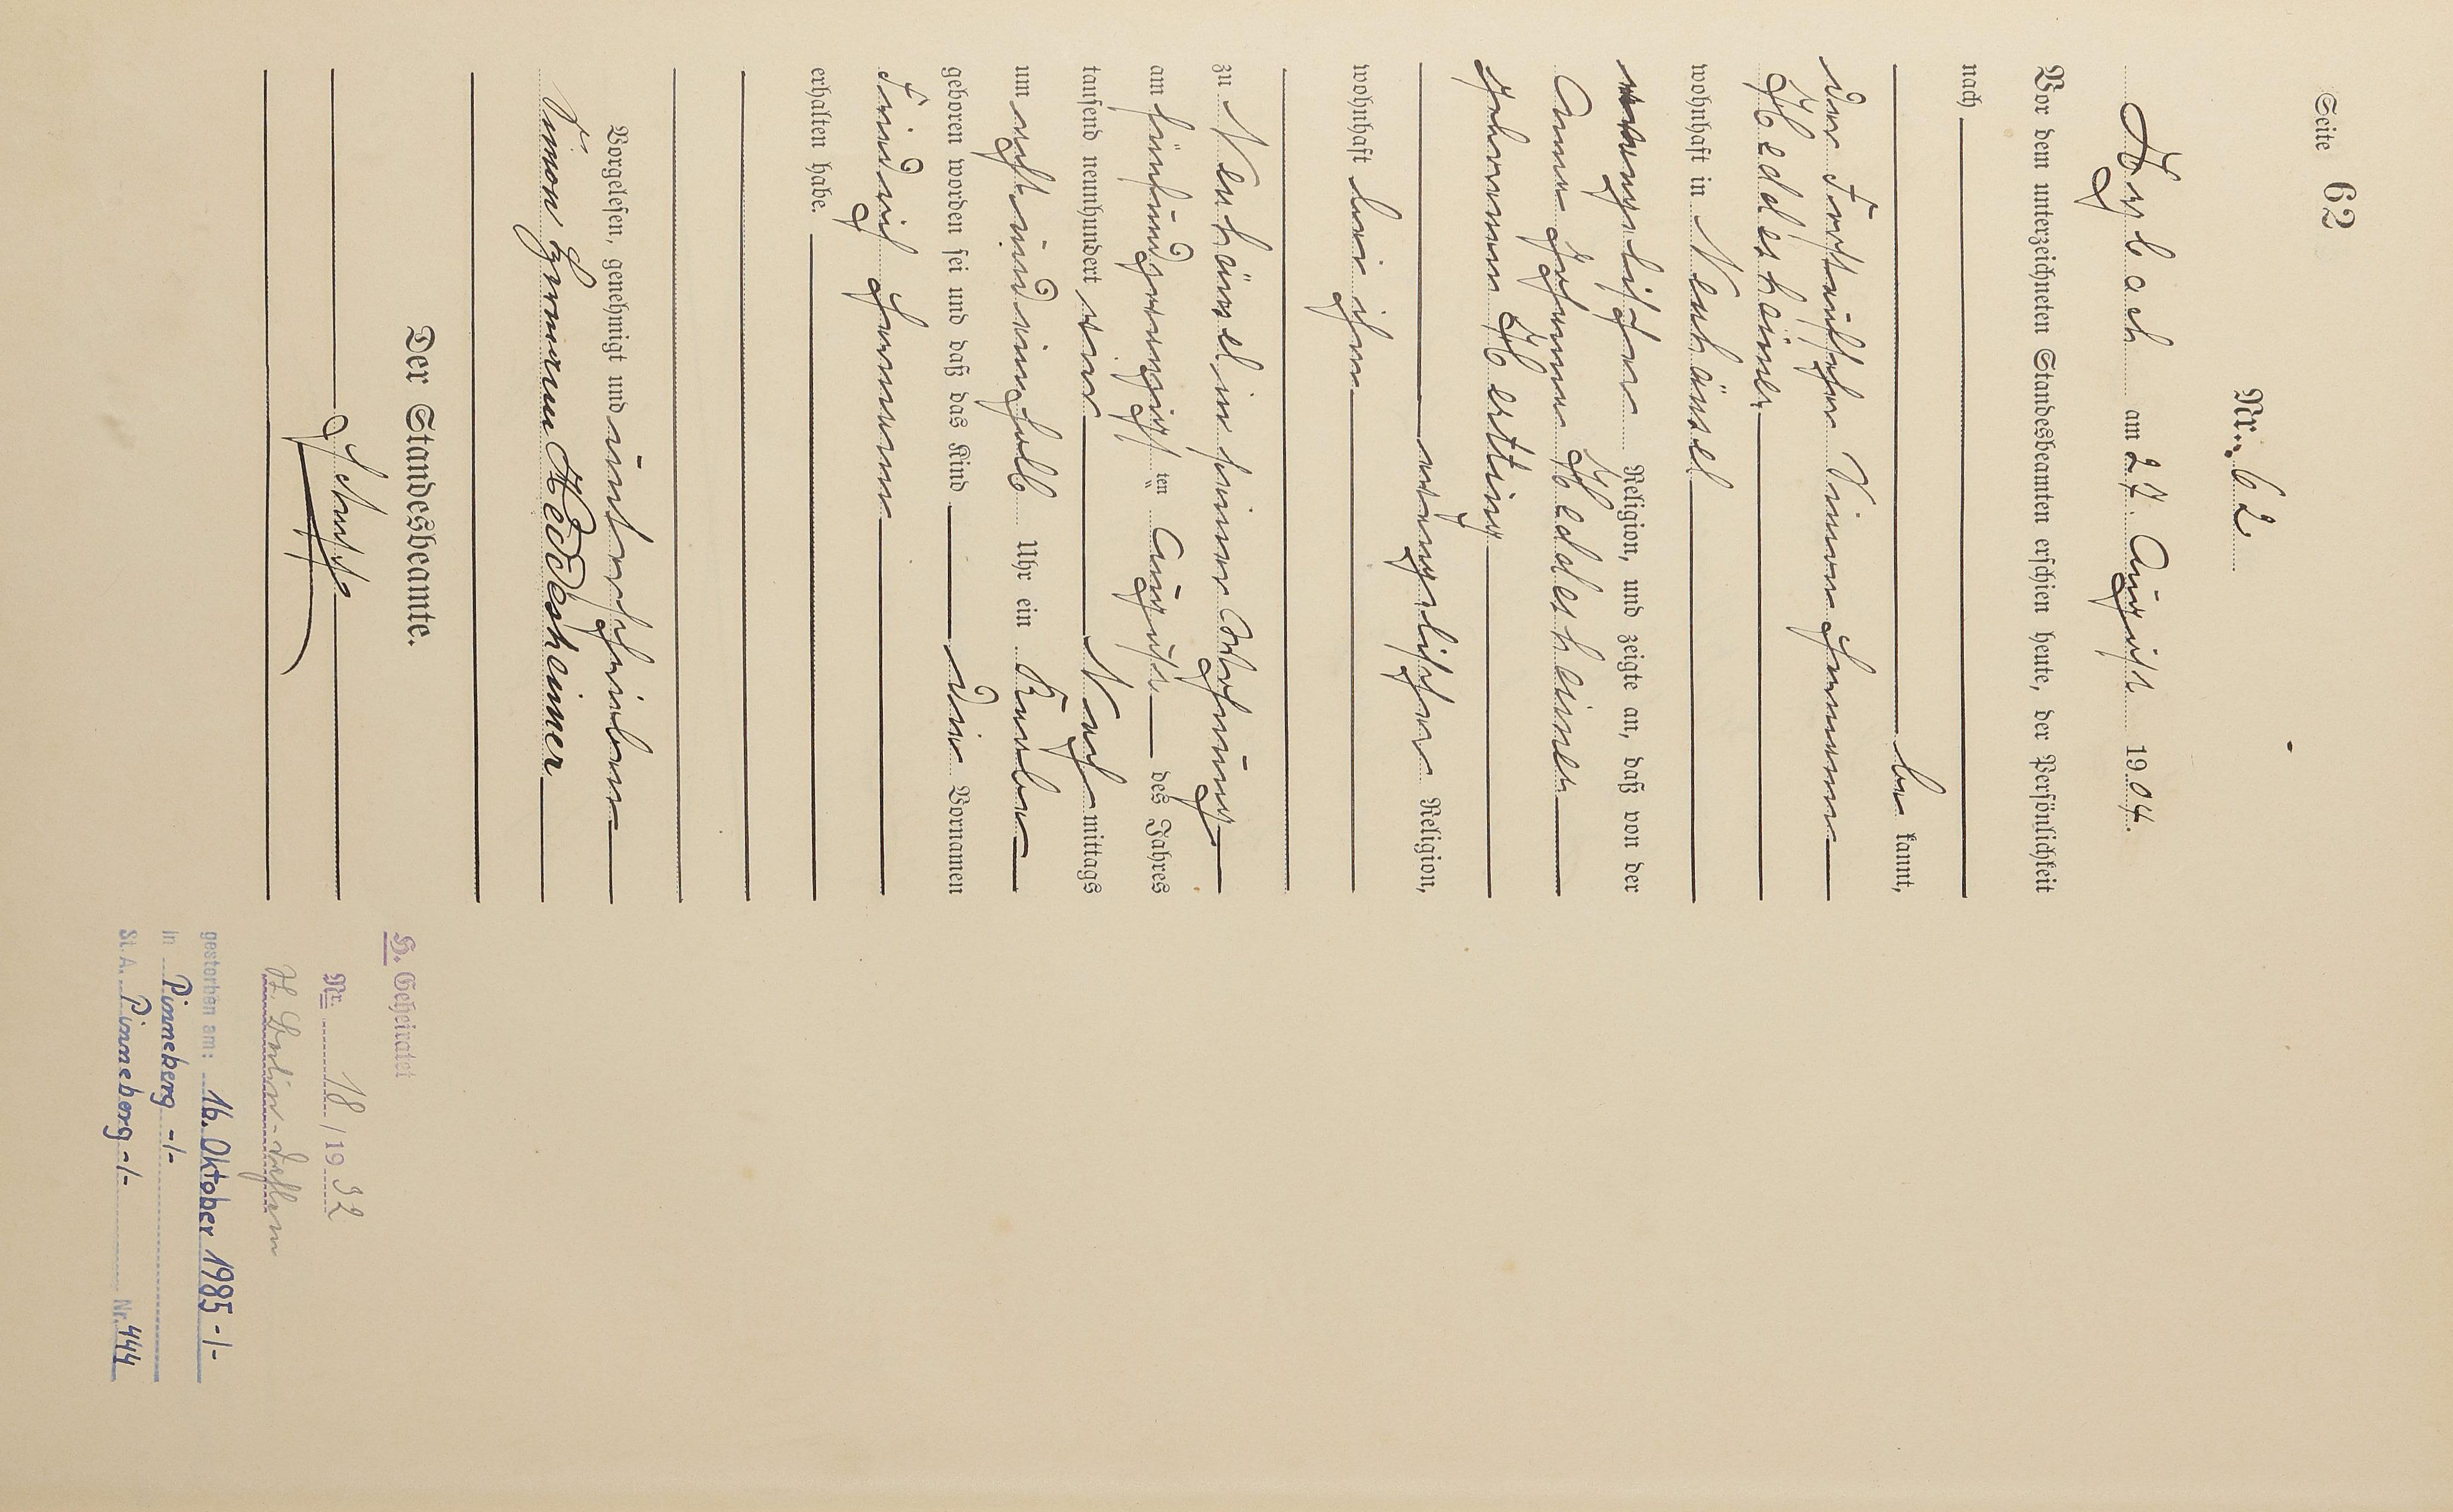 Seite 62
Nr. 62.
am 27. August 1904.
Vor dem unterzeichneten Standesbeamten erschien heute, der Persönlichkeit
nach
be kannt,
der Simon Hermann
Heddesheimer
wohnhaft in Neuhäusel
evangelischer Religion, und zeigte an, daß von der
Anna Johanna Heddesheimer
geborenen Herrting
evangelischer Religion,
wohnhaft bei ihm
zu Neuhäusel in seiner Wohnung
am fünfundzwanzigsten August des Jahres
tausend neunhundert vier Nach mittags
um acht und einhalb Uhr ein Knabe
geboren worden sei und daß das Kind die Vornamen
Hermann
erhalten habe.
Vorgelesen, genehmigt und unterschrieben
Simon Hermann Heddesheimer
Der Standesbeamte.
H. Geheiratet
Nr. 18/1932
gestorben am: 16. Oktober 1985 -/-
in Pinneberg -/-
St. A. Pinneberg -/- Nr. 444